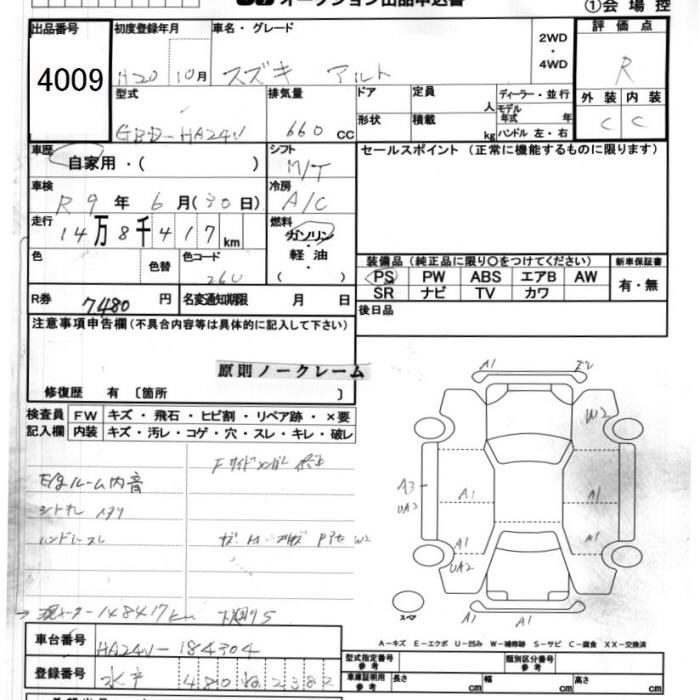 オークション出品申込書
①会場控
出品番号
4009
初度登録年月
H20 10月
車名・グレード
スズキ アルト
2WD
・
4WD
評価点
R
型式
GBD-HA24V
排気量
660 CC
ドア
定員
人
ディーラー・並行
モデル年式
年
形状
積載
kg
ハンドル 左・右
外装 内装
C C
車歴
自家用・( )
シフト
M/T
セールスポイント (正常に機能するものに限ります)
車検
R 9 年 6 月 (30日)
冷房
A/C
走行
14万8千417km
燃料
ガソリン
・
軽油
( )
色
色替
色コード
26U
装備品 (純正品に限り〇をつけてください)
新車保証書
PS PW ABS エアB AW
SR ナビ TV カワ
有・無
R券
7480 円
名変通知期限
月 日
後日品
注意事項申告欄(不具合内容等は具体的に記入して下さい)
原則ノークレーム
修復歴 有 〔箇所 〕
検査員記入欄
FW キズ・飛石・ヒビ割・リペア跡・×要
内装 キズ・汚レ・コゲ・穴・スレ・キレ・破レ
E/gルーム内音
シートキレ
ハンドルスレ
現メーター148417km
下廻りS
A1
E2
W2
A3
UA2
A1
A1
A1
UA2
A1
A1
A1
スペア
A-キズ E-エクボ U-凹み W-補修跡 S-サビ C-腐食 XX-交換済
車台番号
HA24V-184304
登録番号
水戸 480 ね 2382
型式指定番号
参考
類別区分番号
参考
車庫証明用
参考
長さ
cm
幅
cm
高さ
cm